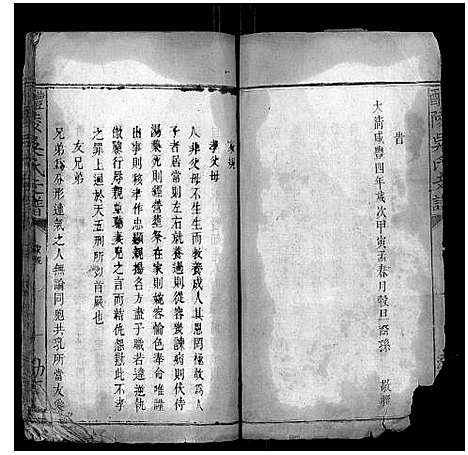 醴陵吳氏支譜
旹
大清咸豐四年歲次甲寅孟春月穀旦裔孫
敬修
家規
孝父母
人非父母不生生而教養成人其恩罔極故為人
子者居當則左右就養過則從容幾諫病則伏侍
湯藥死則經營葬祭在家則婉容愉色奉命唯謹
出事則移孝作忠顯親揚名方盡子職若違逆執
傲薄行辱親聽妻兒之言而精洗怨懟此不孝
之罪上通於天五刑所以首嚴也
友兄弟
兄弟為分形連氣之人無論同胞共乳所當友愛
醴陵吳氏支譜
家規